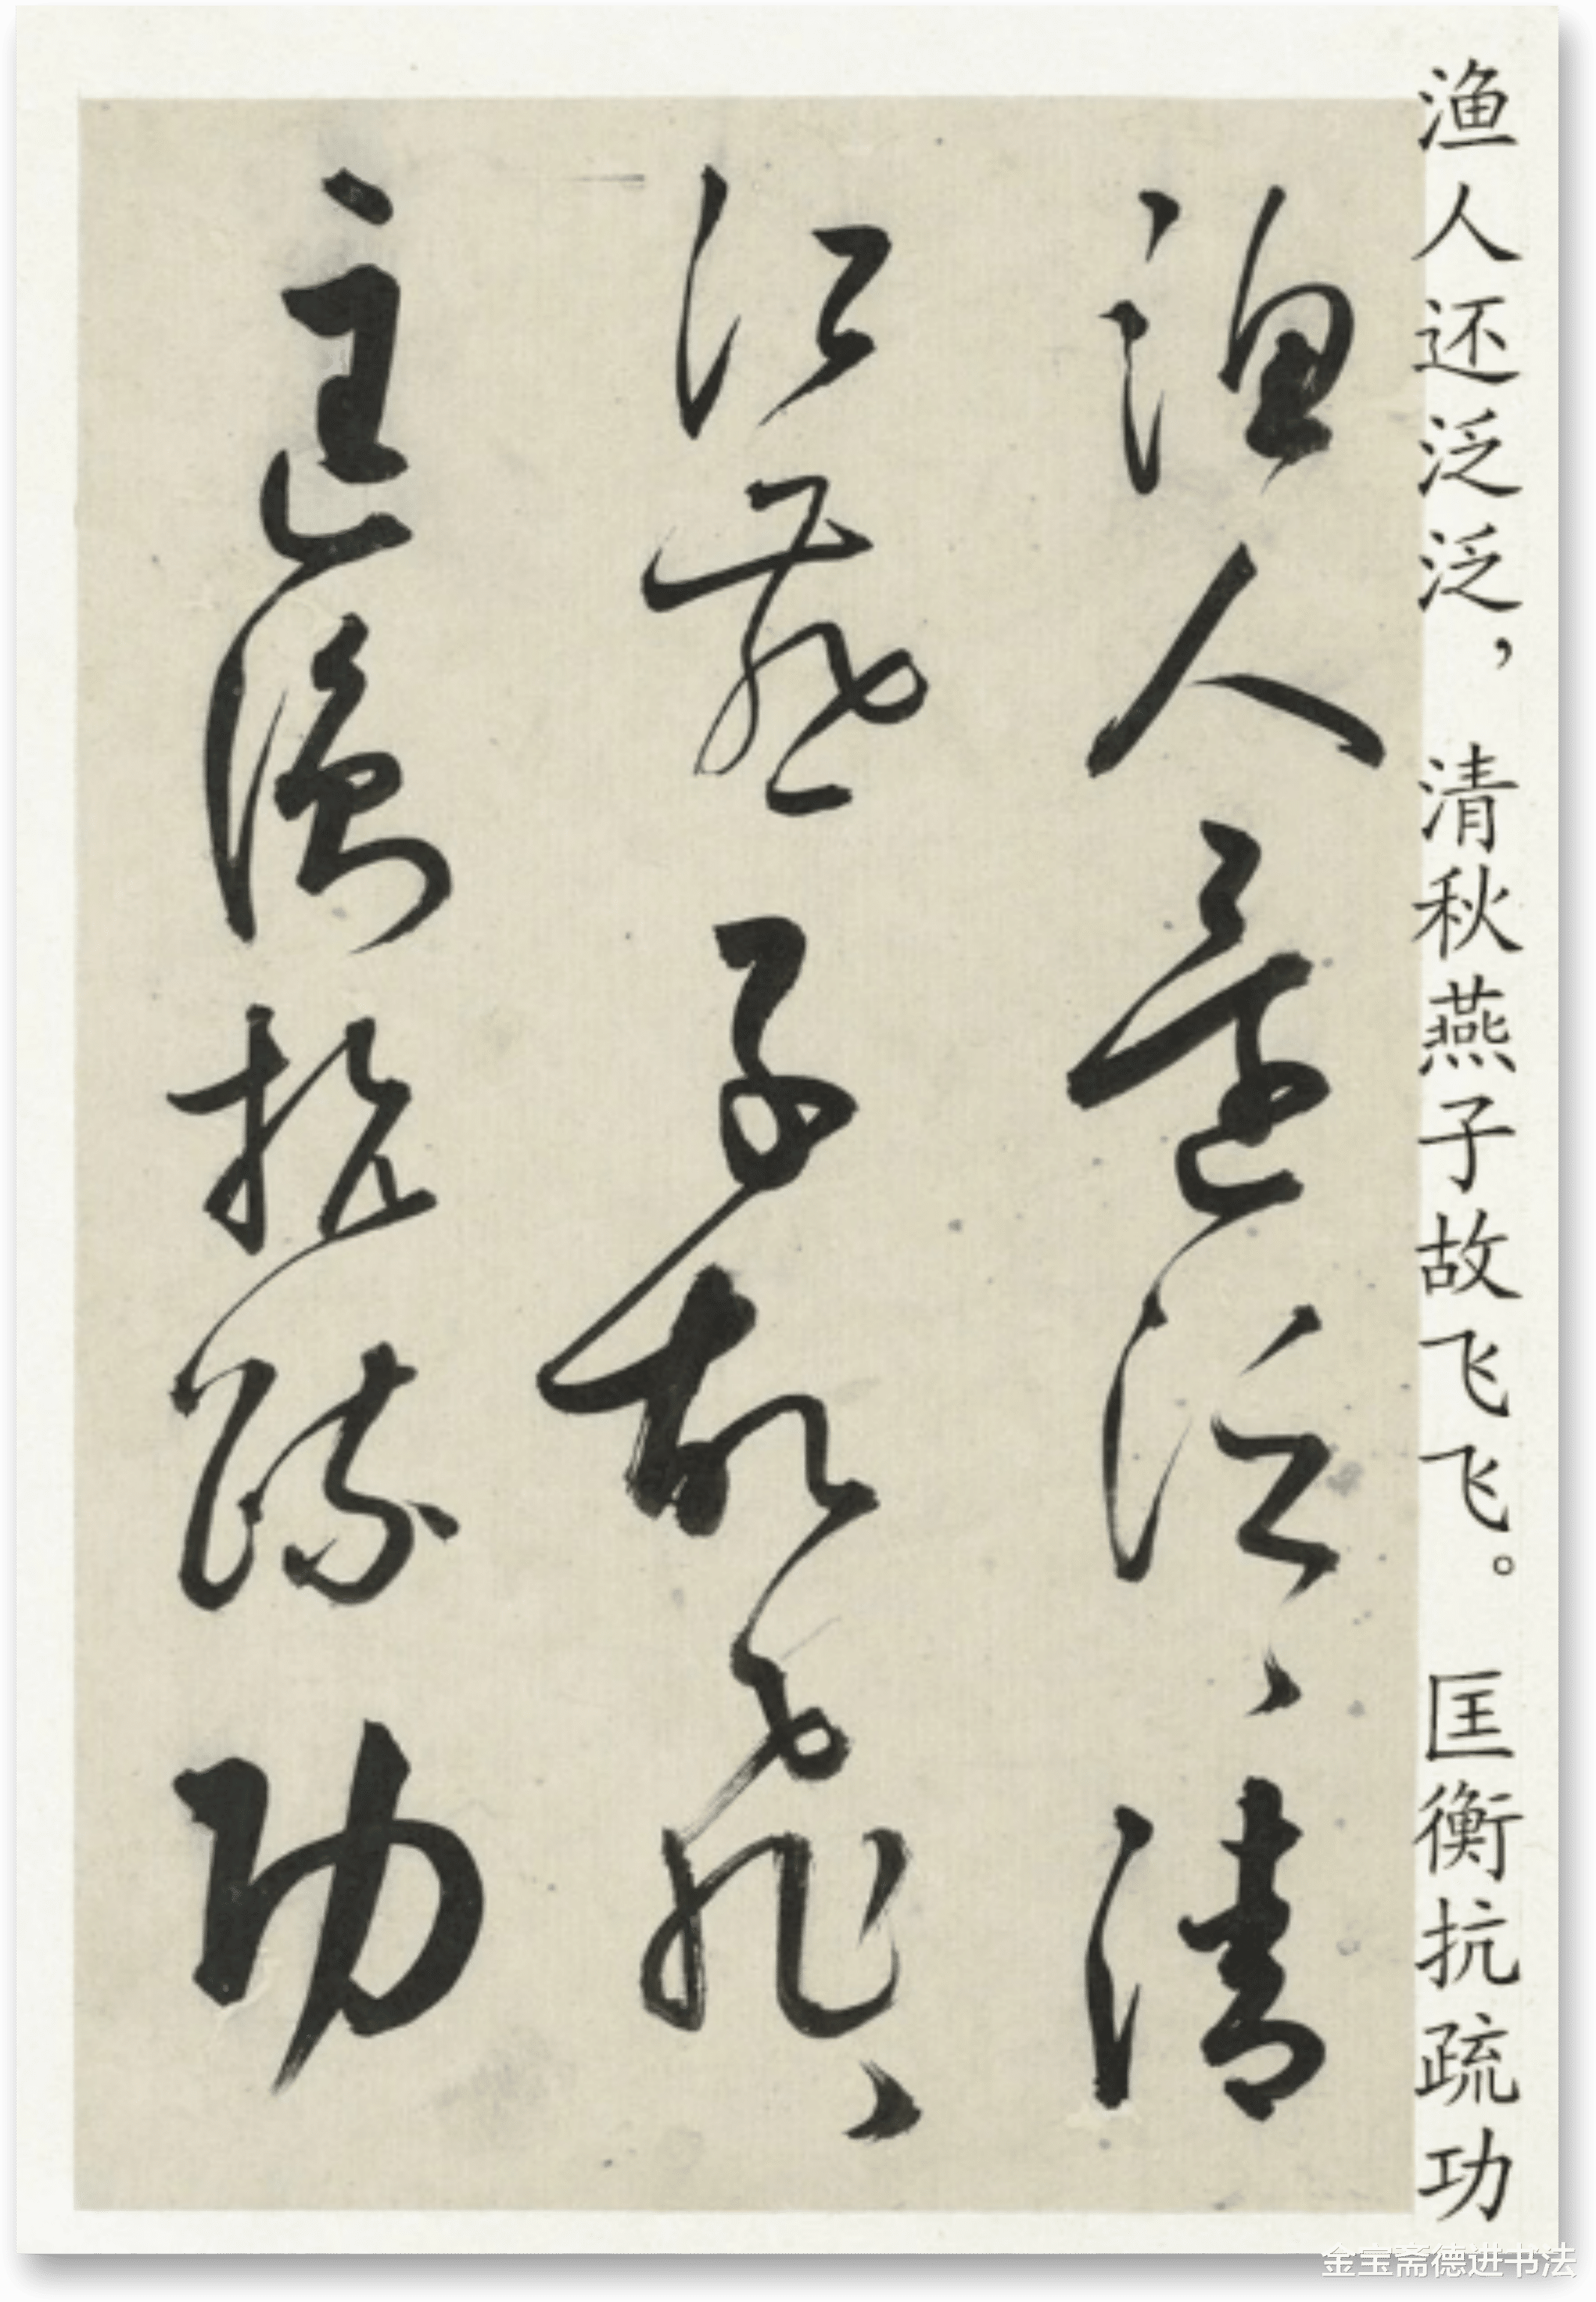 渔人还泛泛，清秋燕子故飞飞。匡衡抗疏功
漁人還泛〻清
江燕子故飛〻
匡衡抗疏功
金宝斋德进书法